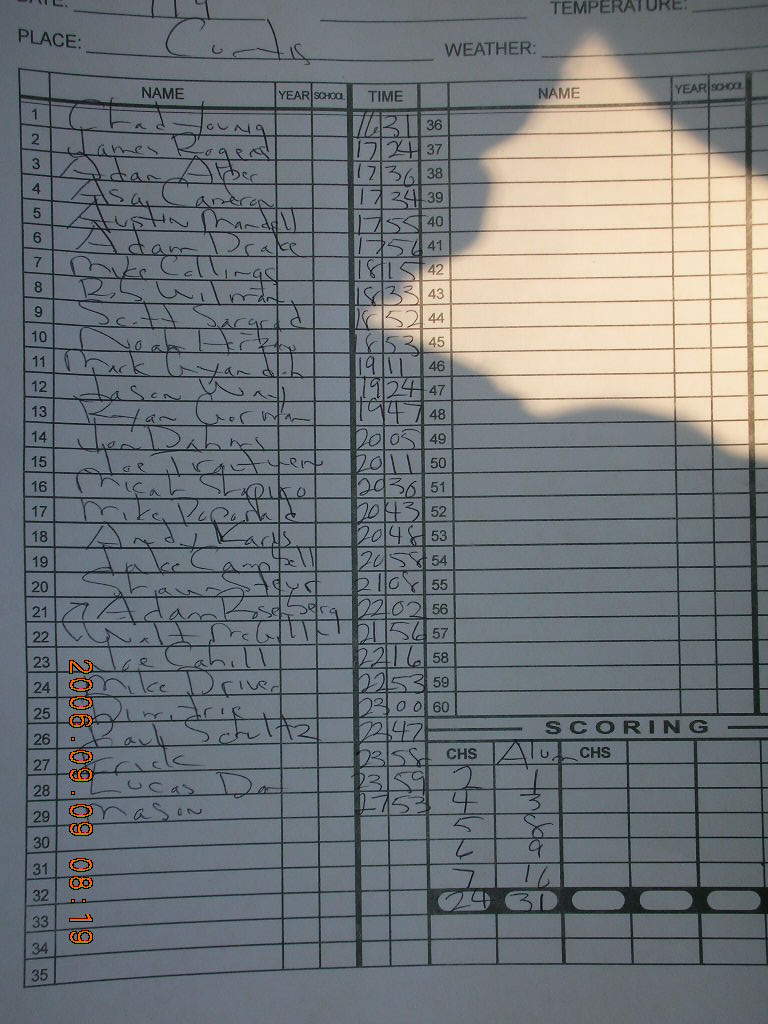 DATE: 9/9
TEMPERATURE:
PLACE: Curtis WEATHER:
NAME YEAR SCHOOL TIME NAME YEAR SCHOOL
1 Chad Young 16 31 36
2 James Rogers 17 24 37
3 Adam 17 36 38
4 Asa Cameron 17 34 39
5 Austin Mandell 17 55 40
6 Adam Drake 17 56 41
7 Mike Collings 18 15 42
8 R.S. Wilman 18 33 43
9 Scott Sargrad 18 52 44
10 Noah 18 53 45
11 Mark 19 11 46
12 Jason 19 24 47
13 Ryan Gorman 19 47 48
14 Jon Dahms 20 05 49
15 Joe 20 11 50
16 Micah Shapiro 20 36 51
17 Mike 20 43 52
18 Andy Karls 20 48 53
19 Jake Campbell 20 58 54
20 Shaun 21 08 55
21 Adam Rosenberg 22 02 56
22 Walt 21 56 57
23 Joe Cahill 22 16 58
24 Mike Driver 22 53 59
25 Dimitrie 23 00 60
26 Paul Schultz 23 47
27 Erick 23 58
28 Lucas 23 59
29 Mason 27 53
30
31
32
33
34
35
SCORING
CHS Alum CHS
2 1
4 3
5 8
6 9
7 16
24 31
2006.09.09 08:19